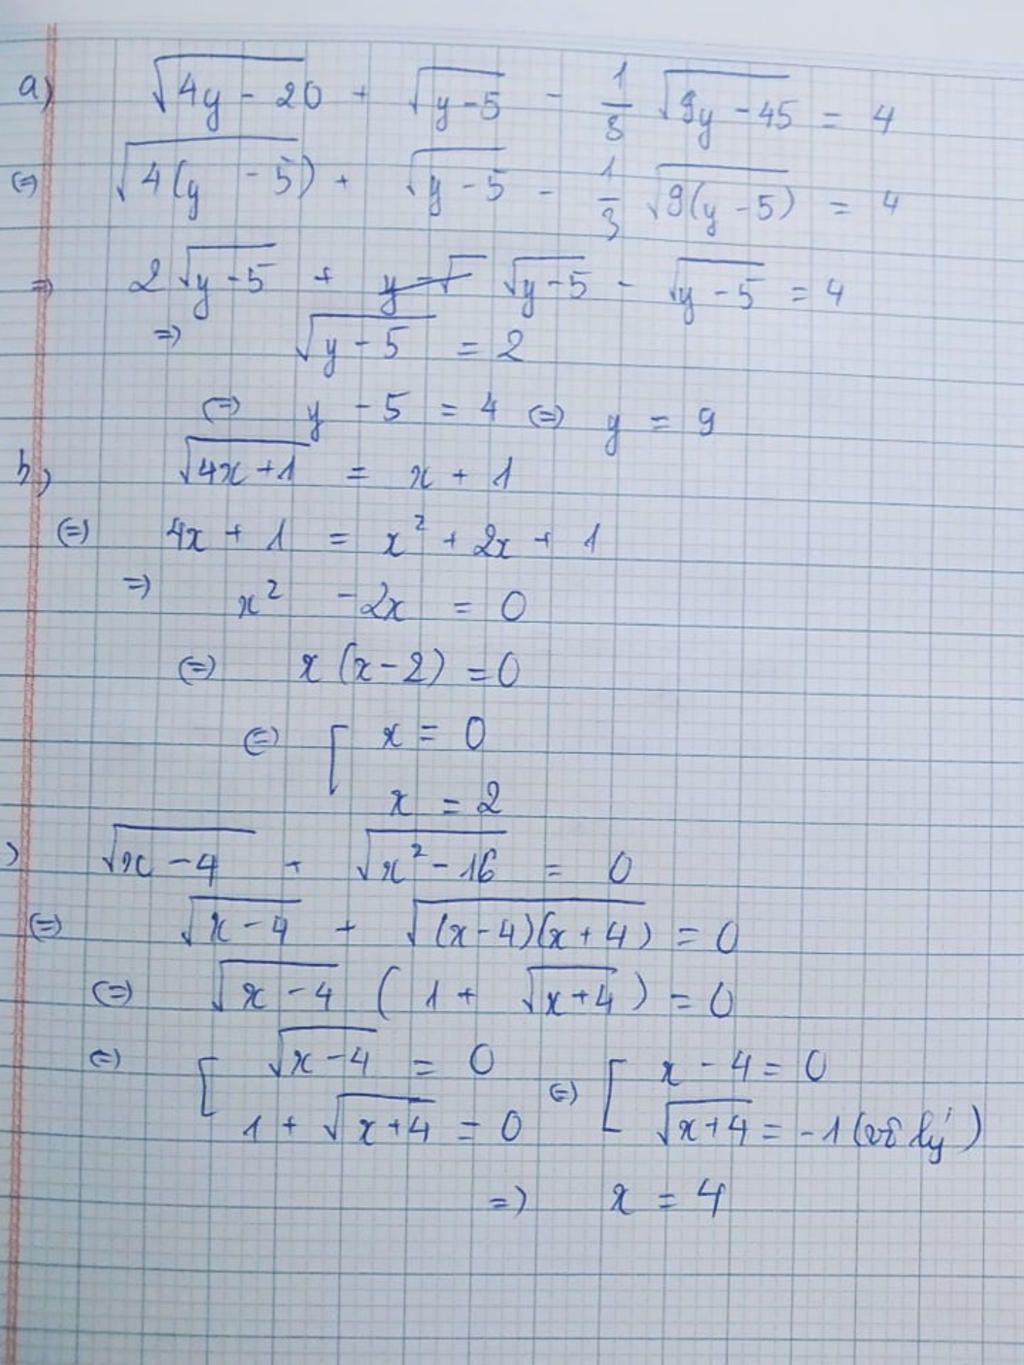 a) √(4y - 20) + √(y-5) - 1/3 √(9y - 45) = 4
(=) √(4(y - 5)) + √(y - 5) - 1/3 √(9(y - 5)) = 4
=) 2√(y-5) + √(y-5) - √(y-5) = 4
=) √(y-5) = 2
(=) y - 5 = 4 (=) y = 9
b) √(4x+1) = x + 1
(=) 4x + 1 = x² + 2x + 1
=) x² - 2x = 0
(=) x(x-2) = 0
(=) [ x = 0
x = 2
) √(x-4) + √(x² - 16) = 0
(=) √(x-4) + √((x-4)(x+4)) = 0
(=) √(x-4) ( 1 + √(x+4) ) = 0
(=) [ √(x-4) = 0 (=) [ x - 4 = 0
1 + √(x+4) = 0 √(x+4) = -1 (vô lý)
=) x = 4